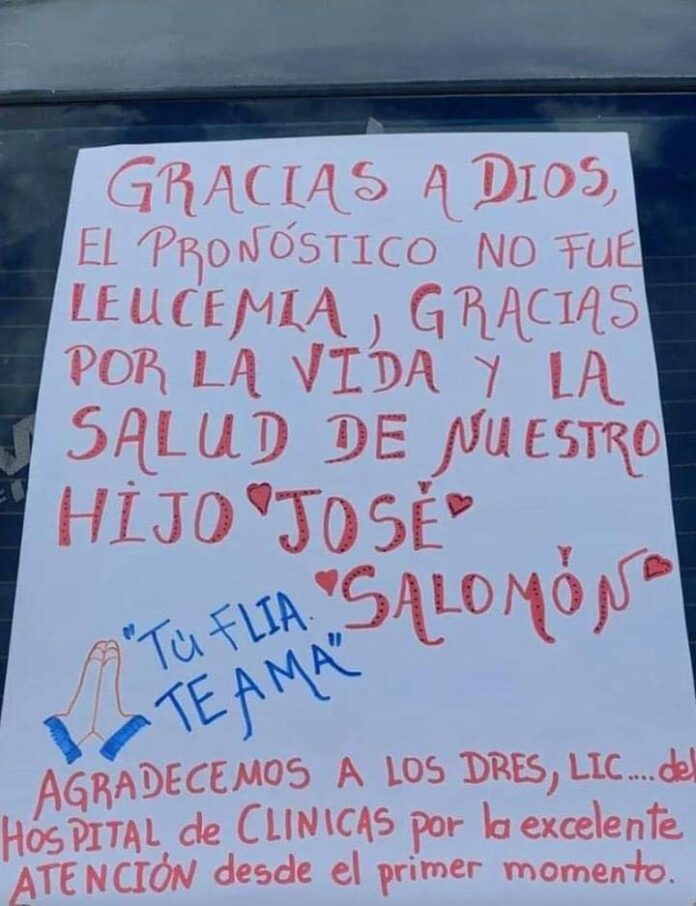 GRACIAS A DIOS,
EL PRONÓSTICO NO FUE
LEUCEMIA, GRACIAS
POR LA VIDA Y LA
SALUD DE NUESTRO
HIJO JOSÉ
SALOMÓN
"TÚ FLIA.
TE AMA"
AGRADECEMOS A LOS DRES, LIC.... del
HOSPITAL de CLINICAS por la excelente
ATENCIÓN desde el primer momento.